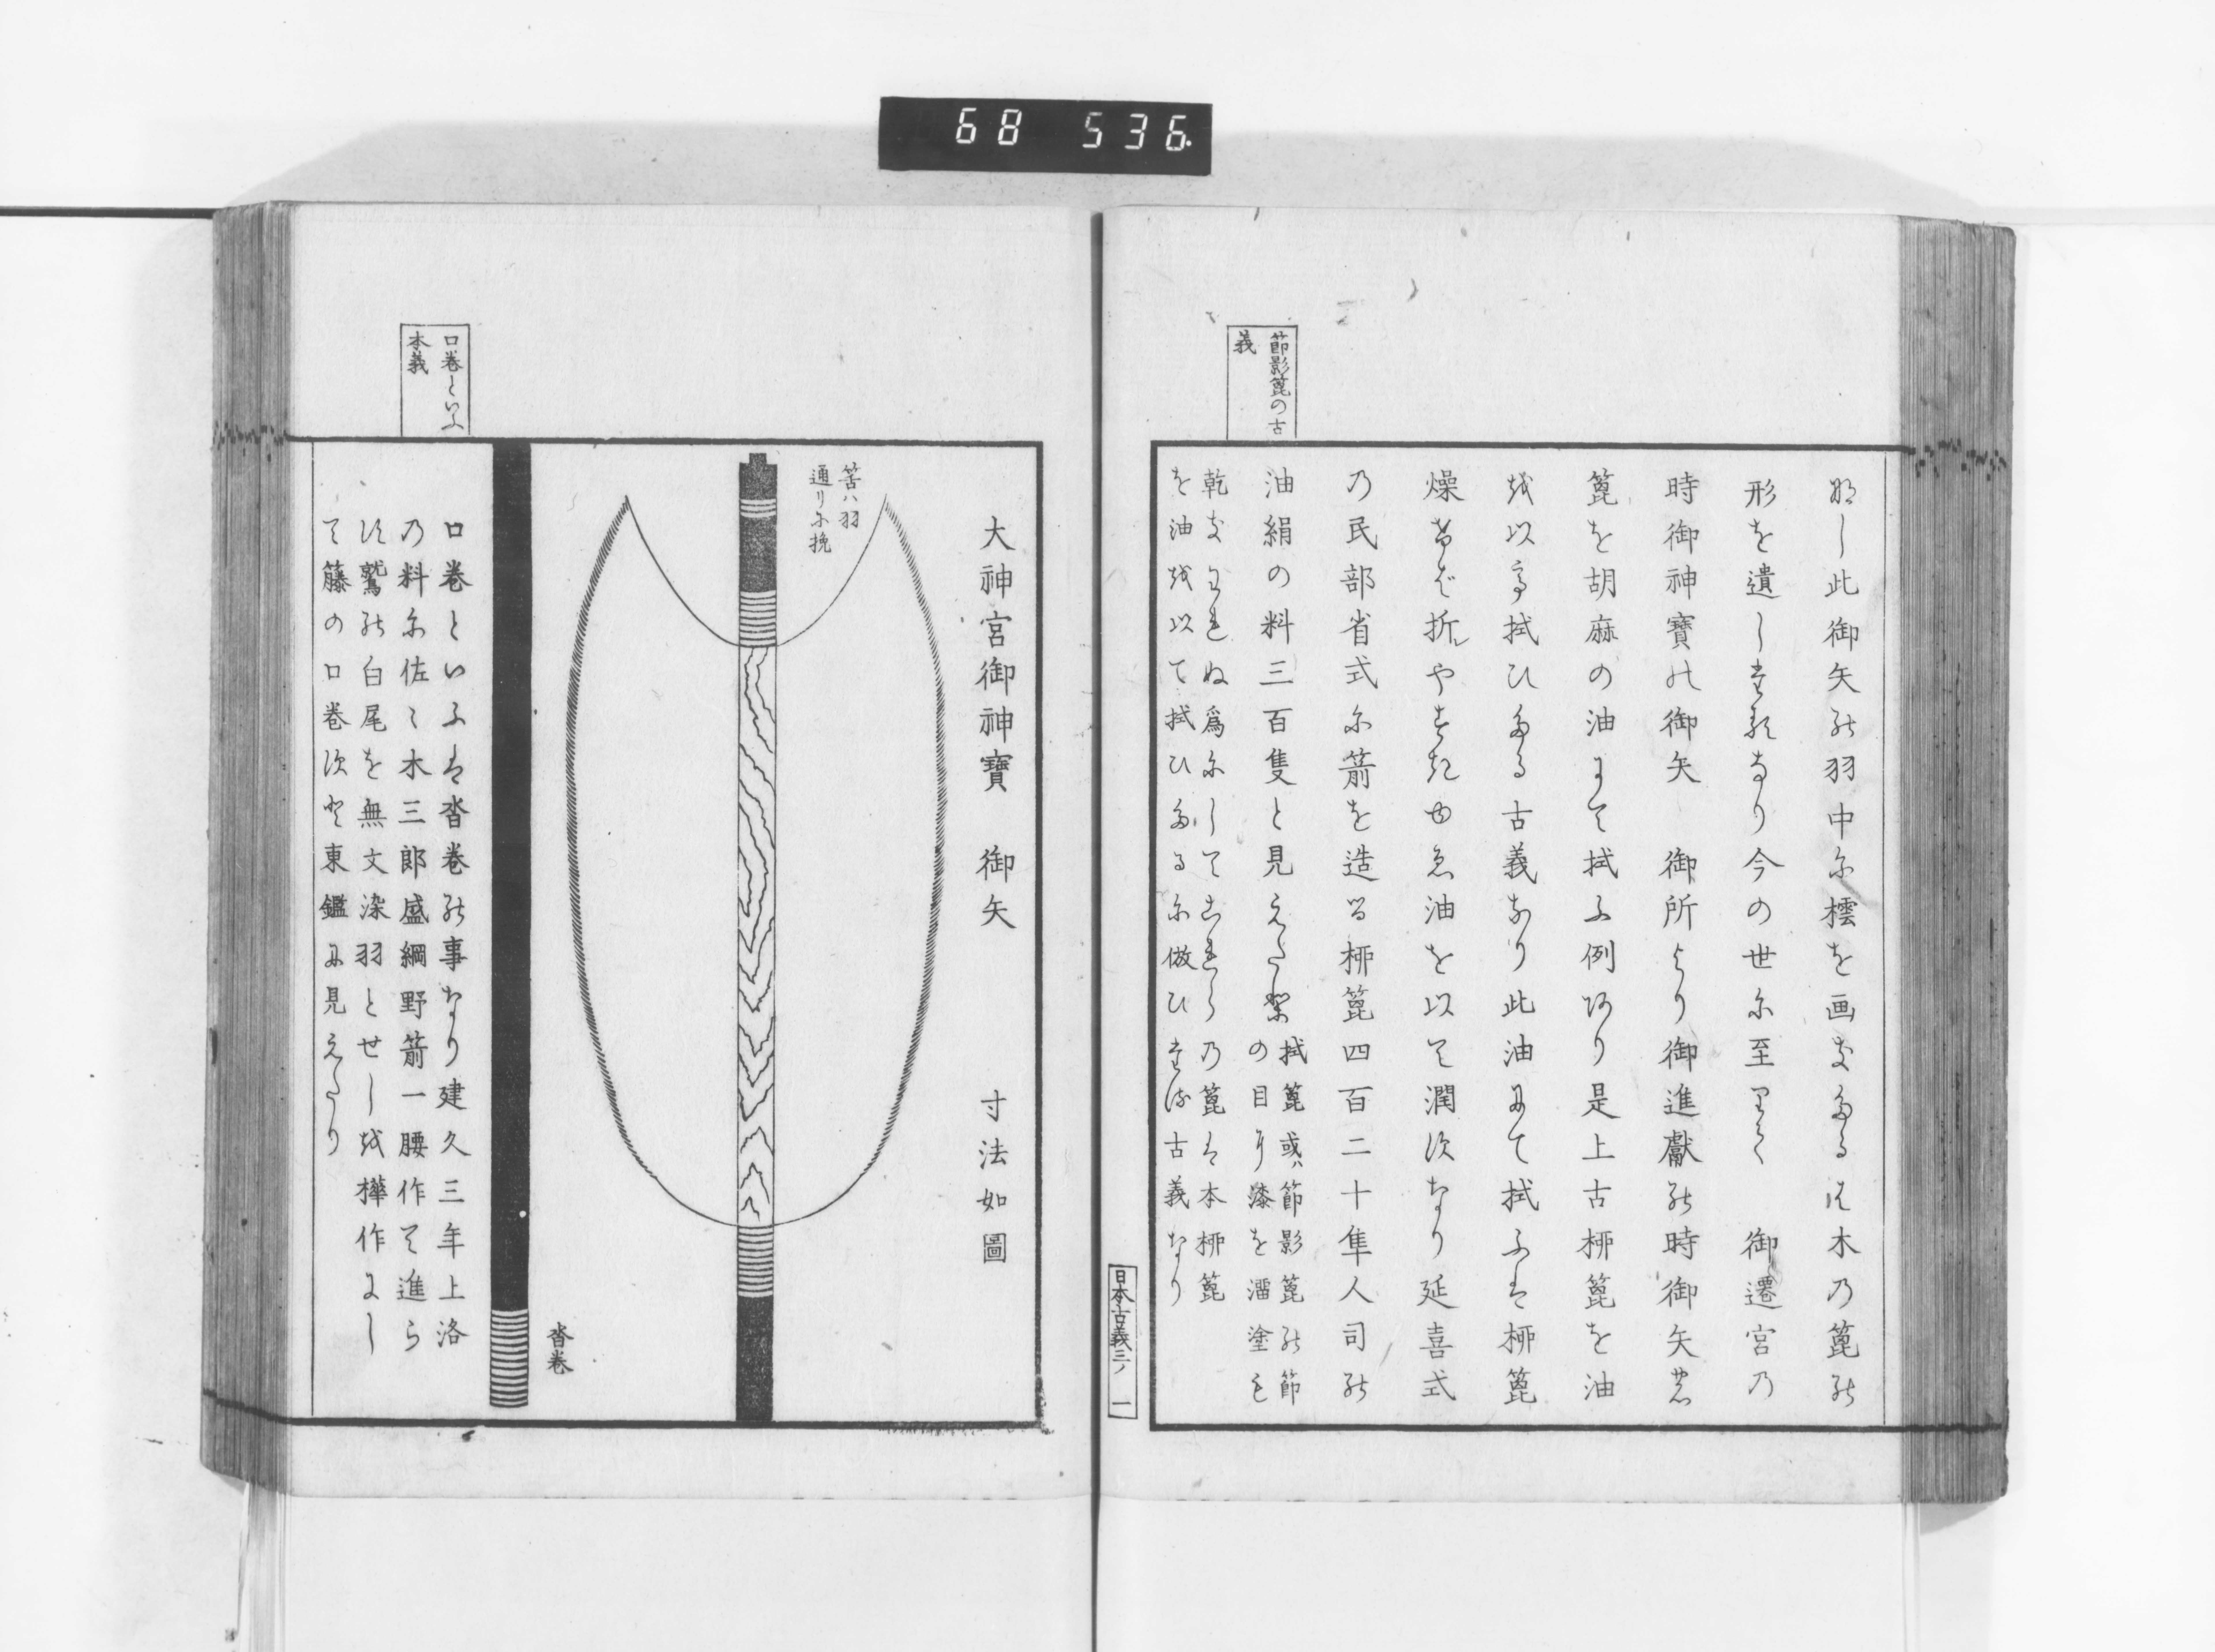 68 536.
節影箆の古
義
形を遺し
時御神寶の御矢 御所より御進獻の時御矢
箆を胡麻の油にて拭ふ例あり是上古柳箆を油
を以て拭ひたる古義なり此油にて拭ふは柳箆
燥けば折やすきゆゑ油を以て潤すなり延喜式
乃民部省式に箭を造る柳箆四百二十隼人司の
油絹の料三百隻と見えたり
拭箆或ハ節影箆の節
の目り漆を溜塗も
乾きわれぬ爲にしてこれらの箆は本柳箆
を油を以て拭ひたるに倣ひたる古義なり
日本古義三ノ 一
大神宮御神寶 御矢 寸法如圖
筈ハ羽
通りに挽
沓卷
口卷といふ
本義
口卷といふは沓卷の事なり建久三年上洛
乃料に佐々木三郎盛綱野箭一腰作て進ら
す鷲の白尾を無文染羽とせしを樺作にし
て藤の口卷すと東鑑に見えたり